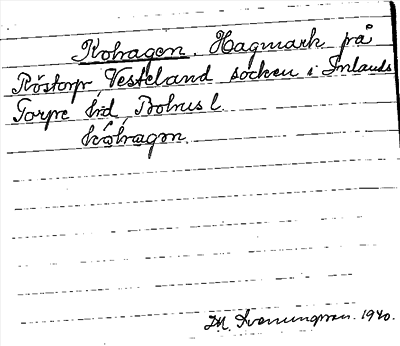 Kohagen. Hagmark på
Röstorp Vesteland socken i Inlands
Torpe hd, Bohusl.
kóhagen.
M. Svenungsson. 1940.